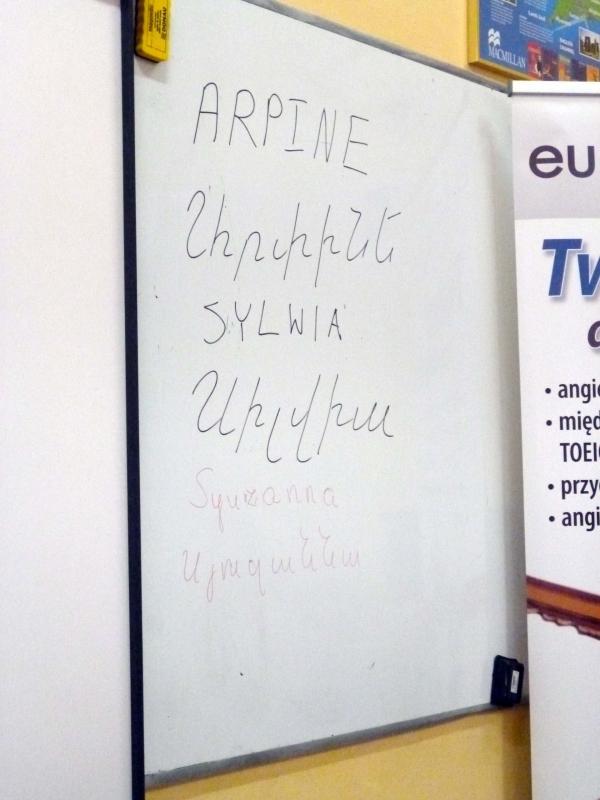 ARPINE
Արփինե
SYLWIA
Սիլվիա
Syuzanna
Սյուզաննա
MACMILLAN
eu
Tw
• angie
• międ
TOEIC
• przy
• angi